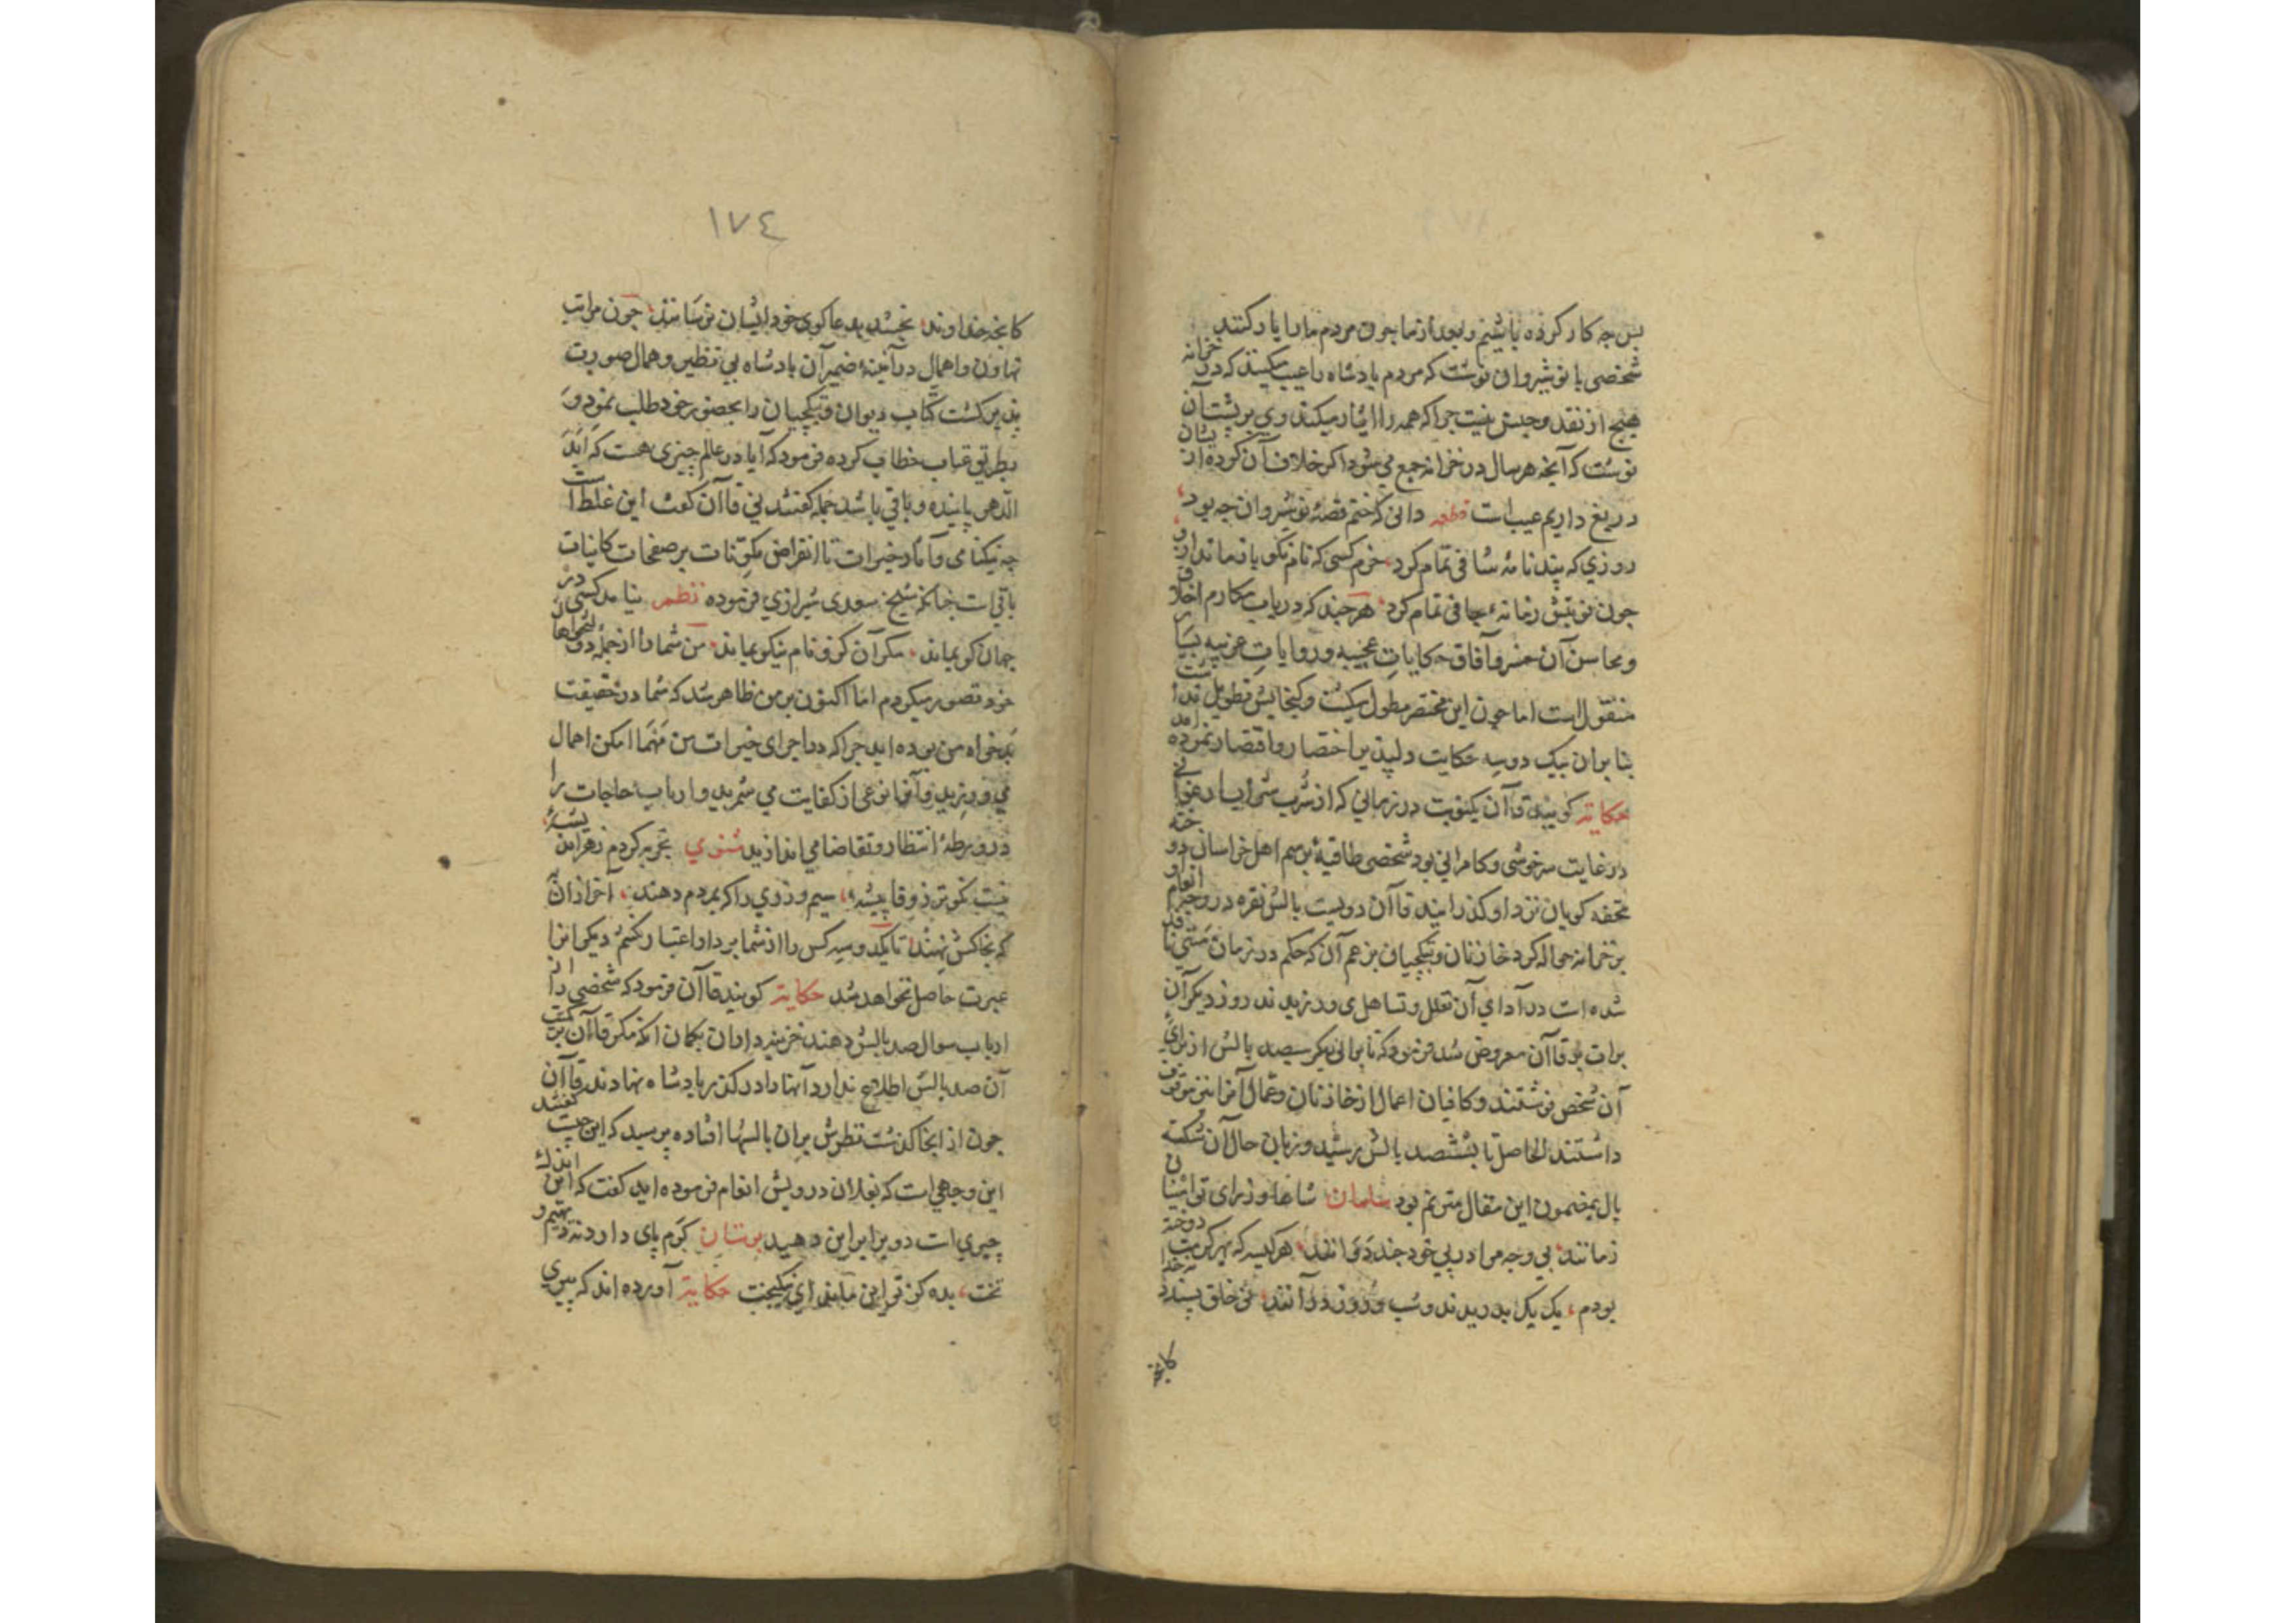 بس چه کار کرده باشیم و بعد از ما چون مردم ما را یاد کنند
شخصی با نوشیروان نوشت که مردم پادشاه را عیب میکنند که در خزانه
هیچ از نقد و جنس نیست چرا که همه را ایثار میکند وی بر پشت آن
نوشت که آنچه هر سال در خزانه جمع می شود اکر خلاف آن کرده از یشان
دریغ داریم عیب است قطعه دانی که ختم قصهٔ نوشروان چه بود
روزی که پند نامهٔ شافی تمام کرد خرم کسی که نام نکو یافت ماند ازو
چون نوبتش زمانهٔ جافی تمام کرد هر چند که در باب مکارم اخلاق
و محاسن آن حضر و آفاق حکایات عجیبه و روایات غریبه بسیار
منقول است اما چون این مختصر مطول میکشت و کنجایش تطویل نداشت
بنا بران بیک دو سه حکایت دلپذیر اختصار و اقتصار نموده امد
حکایة کویند قاآن یکنوبت در زمانی که از شرب شرابهای ارغوانی
در غایت سرخوشی و کامرانی بود شخصی طاقیهٔ برسم اهل خراسان دوخته
تحفه کویان نزد او کذرانید قاآن دویست بالش نقره در وجه انعام او
بر خزانه حواله کرد خازنان و بتکچیان بزعم آن که حکم در زمان مستی نافذ
شده است در آدای آن تعلل و تساهل می ورزیدند روز دیکر آن
برات بر قاآن معروض شد فرمود که تا براتی دیکر سیصد بالش از برای
آن شخص نوشتند و کافیان اعمال از خازنان و عمال آنرا نیز موقوف
داشتند الحاصل تا بششصد بالش برسید و زبان حال آن شکسته
بال بمضمون این مقال مترنم بود سلمان شاها وزرای تو ابنای
زمانند بی وجه مرا در پی خود چند دوانند هر کیسه که بهر کرمت دوخته
بودم یک یک بدریدند و شب و روز درآنند نی خلق پسندد نه خدا
کانچه
١٧٤
کانچه خداوند بخشد بدعا کوی خود ایشان نرسانند چون مراتب
تهاون و اهمال در آئینهٔ ضمیر آن پادشاه بی نظیر و همال صورت
پذیر کشت کُتّاب دیوان و بتکچیان را بحضور خود طلب نمود و
بطریق عتاب خطاب کرده فرمود که آیا در عالم چیزی هست که ابد
الدهر پاینده و باقی باشد جمله کفتند نی قاآن کفت این غلط است
چه نیکنامی و آثار خیرات تا انقراض مکوّنات بر صفحات کاینات
باقی است چنانکه شیخ سعدی شیرازی فرموده نظم نیامد کسی در
جهان کو بماند مکر آن کزو نام نیکو بماند من شما را از جمله دولتخواهان
خود تصور میکردم اما اکنون بر من ظاهر شد که شما در حقیقت
بدخواه من بوده اید چرا که در اجرای خیرات من مَهما امکن اهمال
می ورزید و آنرا نوعی از کفایت می شمرید و ارباب حاجات را
در ورطهٔ انتظار و تقاضا می اندازید مثنوی تجربه کردم زهر اندیشهٔ
نیست نکوتر ز وقا پیشهٔ سیم و زری را که بمردم دهند آخر ازان به
که بخاکش نهند تا یکدو سه کس را از شما بردار اعتبار نکشم دیکرانرا
عبرت حاصل نخواهد شد حکایة کویند قاآن فرمود که شخصی را از
ارباب سوال صد بالش دهند خزینه داران بکمان انکه مکر قاآن بر کمیت
آن صد بالش اطلاع ندارد آنها را در کذر پادشاه نهادند قاآن
چون از انجا کذشت نظرش بران بالشها افتاده پرسید که این چیست کفتند
این وجهی است که بفلان درویش انعام فرموده اید کفت که این اندک
چیزی است دو برابر این دهید بوستان کرم پای دارد نه دیهیم و
تخت بده کز تو این ماند ای نیکبخت حکایة آورده اند که پیری